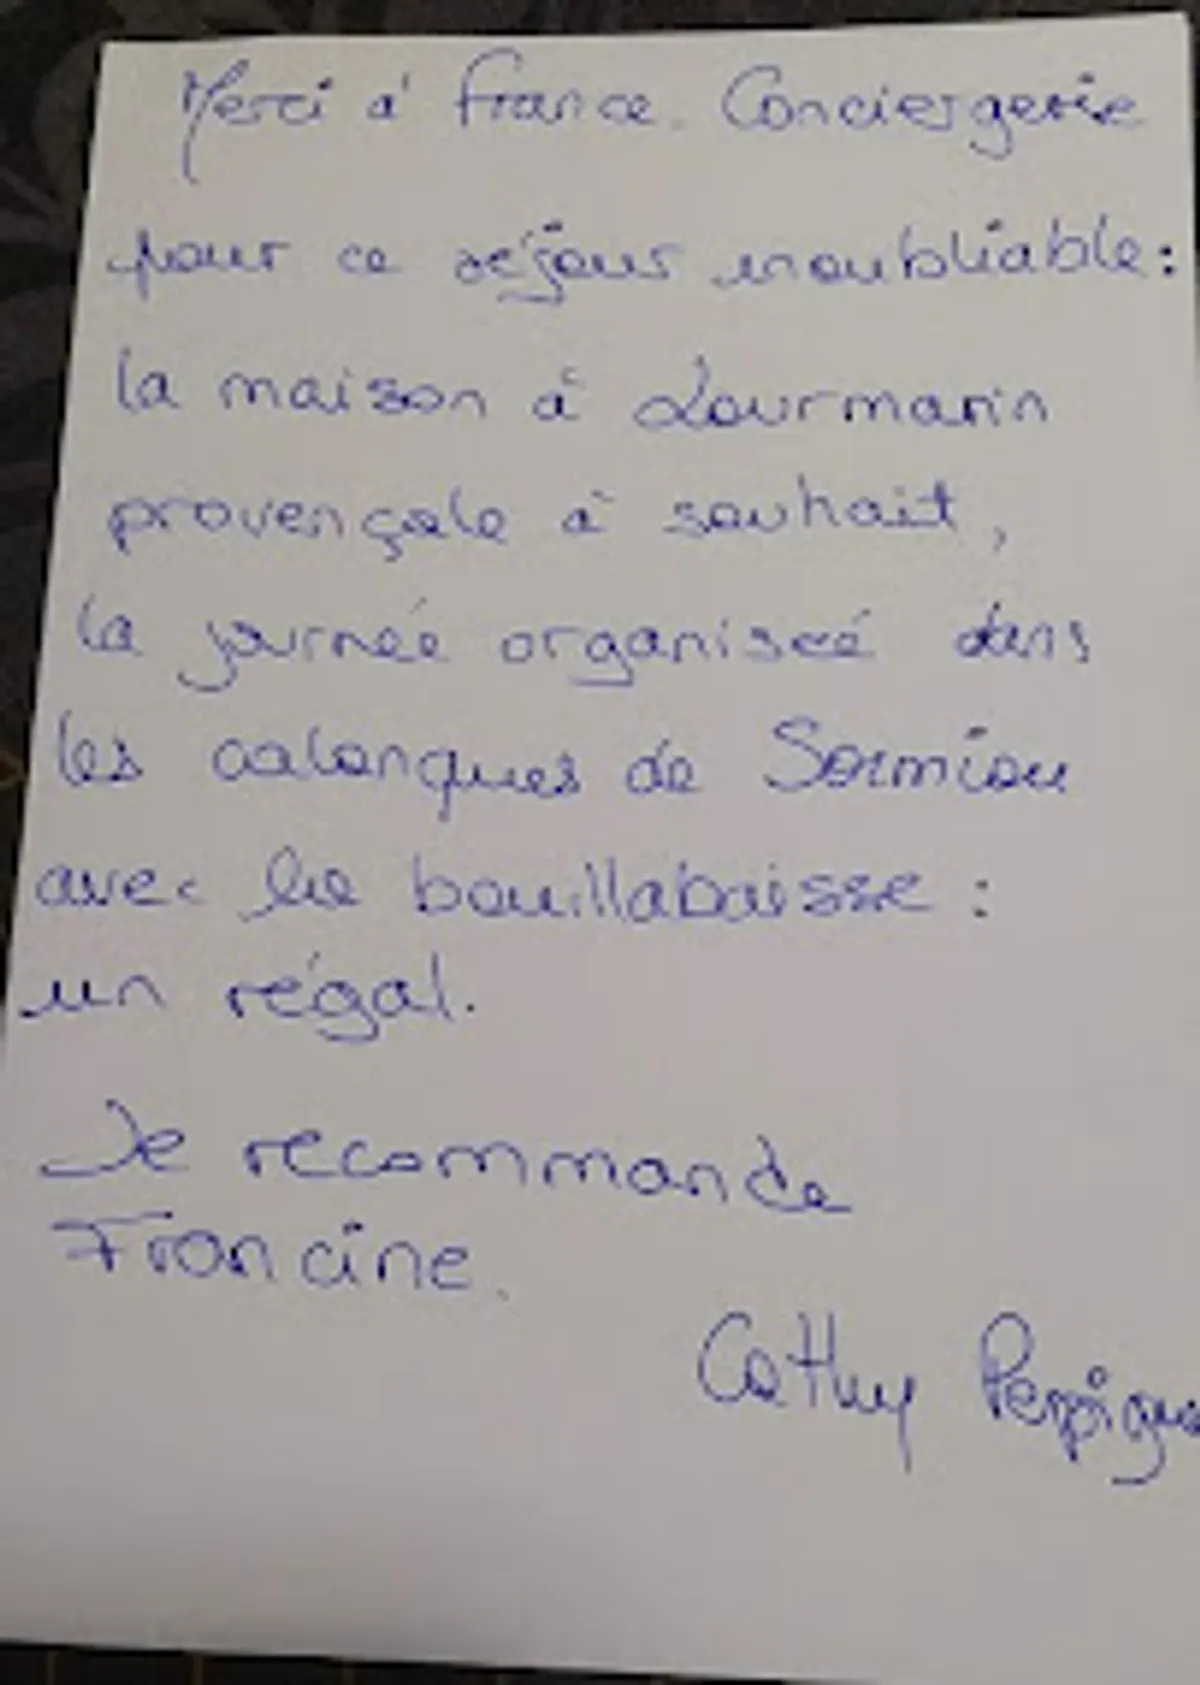 Merci à France. Conciergerie
pour ce séjour inoubliable:
la maison à Lourmarin
provençale à souhait,
la journée organiseé dans
les calanques de Sormiou
avec la bouillabaisse :
un régal.
Je recommande
Francine.
Cathy